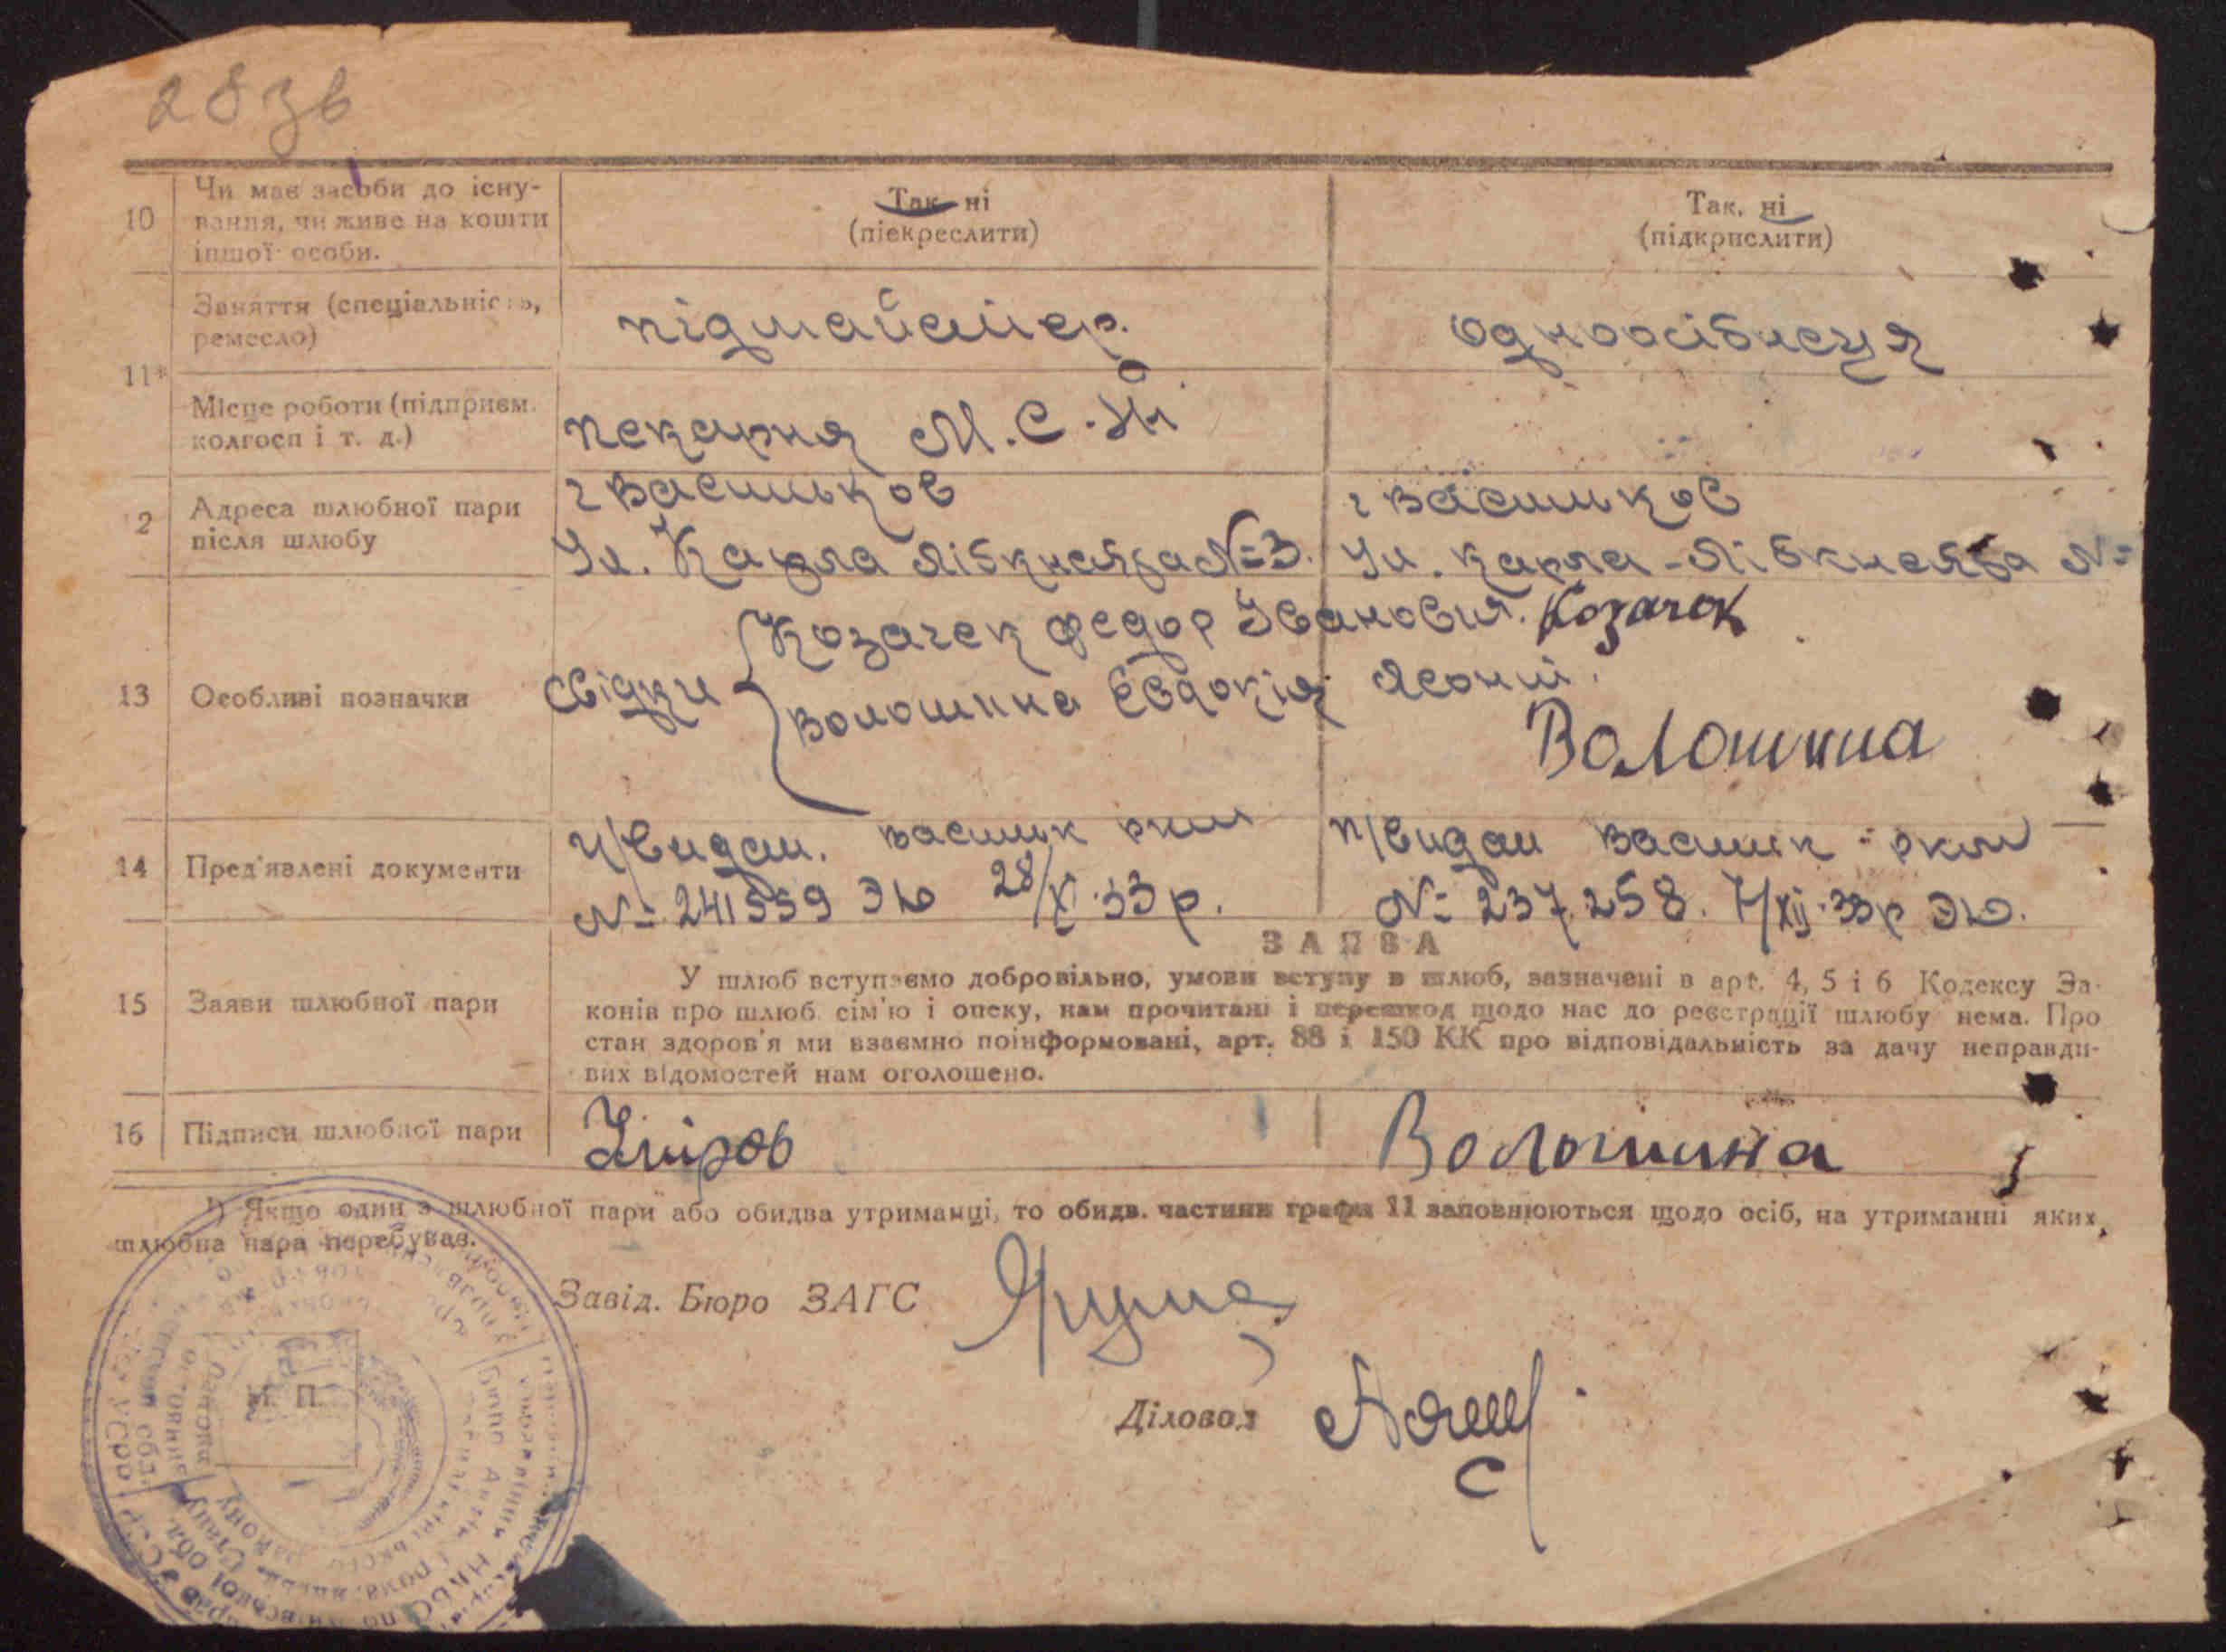 28зв
10
Чи має засоби до існу-
вання, чи живе на кошти
іншої особи.
Так, ні
(піекреслити)
Так, ні
(підкрислити)
11*
Заняття (спеціальність,
ремесло)
підмайстер.
одноосібниця
Місце роботи (підприєм.
колгосп і т. д.)
пекарня М.С.
2
Адреса шлюбної пари
після шлюбу
г Васильков
Ул. Карла Лібкнехта №3.
г Васильков
Ул. Карла-Лібкнехта №
13
Особливі позначки
Свідки
Козачек Федор Іванович. Козачок
Волошина Євдокія
Волошина
14
Пред'явлені документи
п/видан. Васильк ркм
№ 241559 ЭЮ 28/XI.33р.
п/видан Васильк ркм
№ 237258. 7/XII-33р ЭЮ.
15
Заяви шлюбної пари
ЗАЯВА
У шлюб вступаємо добровільно, умови вступу в шлюб, зазначені в арт. 4, 5 і 6 Кодексу За-
конів про шлюб сім'ю і опеку, нам прочитані і перешкод щодо нас до реєстрації шлюбу нема. Про
стан здоров'я ми взаємно поінформовані, арт. 88 і 150 КК про відповідальність за дачу неправди-
вих відомостей нам оголошено.
16
Підписи шлюбної пари
Волошина
¹) Якщо один з шлюбної пари або обидва утриманці, то обидв. частини графи 11 заповнюються щодо осіб, на утриманні яких,
шлюбна пара перебуває.
Завід. Бюро ЗАГС
Діловод
М. П.